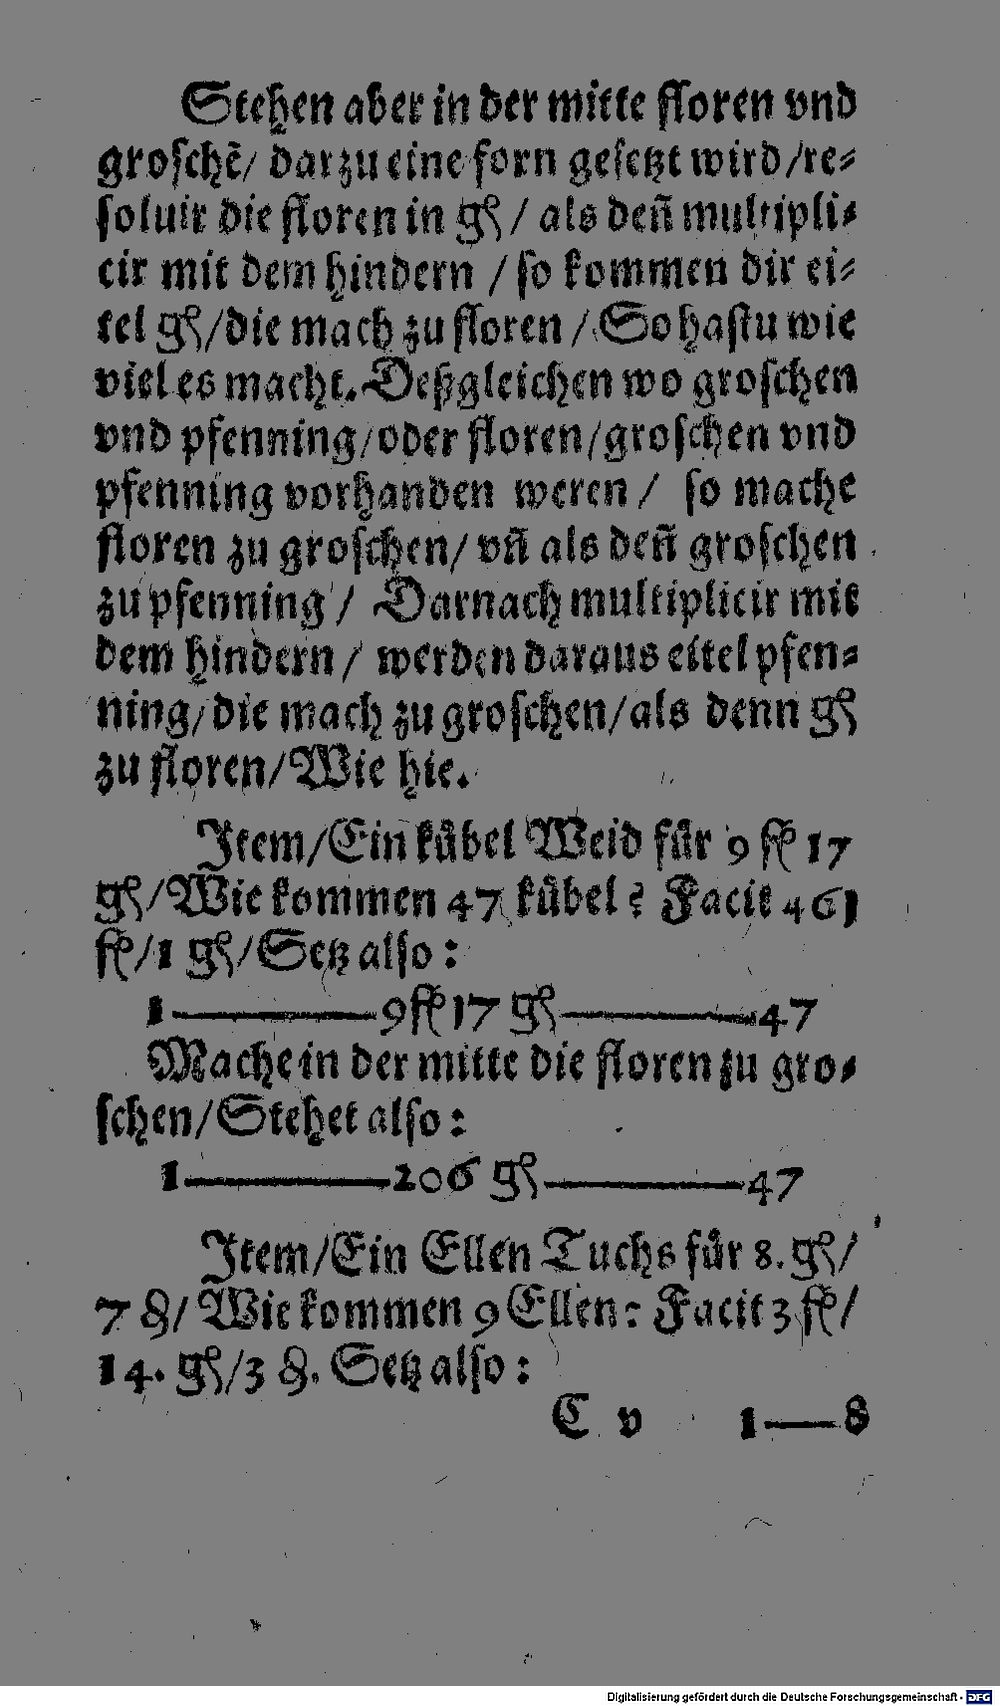 Stehen aber in der mitte floren vnd
groschẽ/ darzu eine forn gesetzt wird/re⸗
soluir die floren in gʃ / als deñ multipli⸗
cir mit dem hindern / so kommen dir ei⸗
tel gʃ/die mach zu floren / So hastu wie
viel es macht. Deßgleichen wo groschen
vnd pfenning/oder floren/groschen vnd
pfenning vorhanden weren / so mache
floren zu groschen/ vñ als deñ groschen
zu pfenning / Darnach multiplicir mit
dem hindern / werden daraus eitel pfen⸗
ning/die mach zu groschen/als denn gʃ
zu floren/Wie hie.
Item/Ein kůbel Weid fůr 9 fl 17
gʃ/Wie kommen 47 kůbel? Facit 461
fl/1 gʃ/Setz also:
1————9 fl 17 gʃ————47
Mache in der mitte die floren zu gro⸗
schen/Stehet also:
1————206 gʃ————47
Item/Ein Ellen Tuchs fůr 8. gʃ/
7 ₰/ Wie kommen 9 Ellen: Facit 3 fl/
14. gʃ/3 ₰. Setz also:
C v 1——8
Digitalisierung gefördert durch die Deutsche Forschungsgemeinschaft - DFG